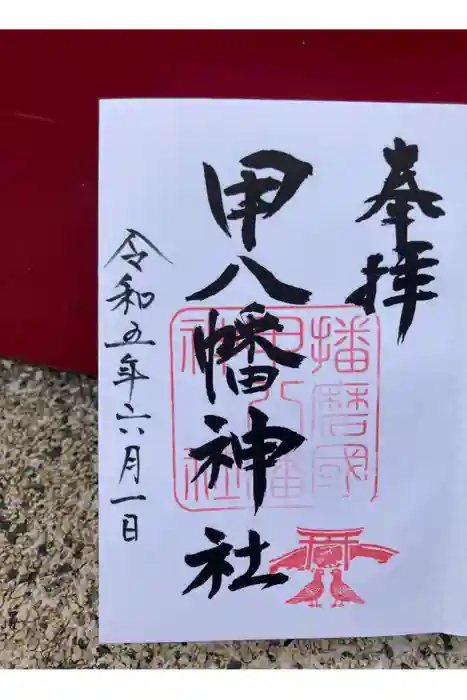 奉拝
播磨國
甲八幡
神社
甲八幡神社
令和五年六月一日